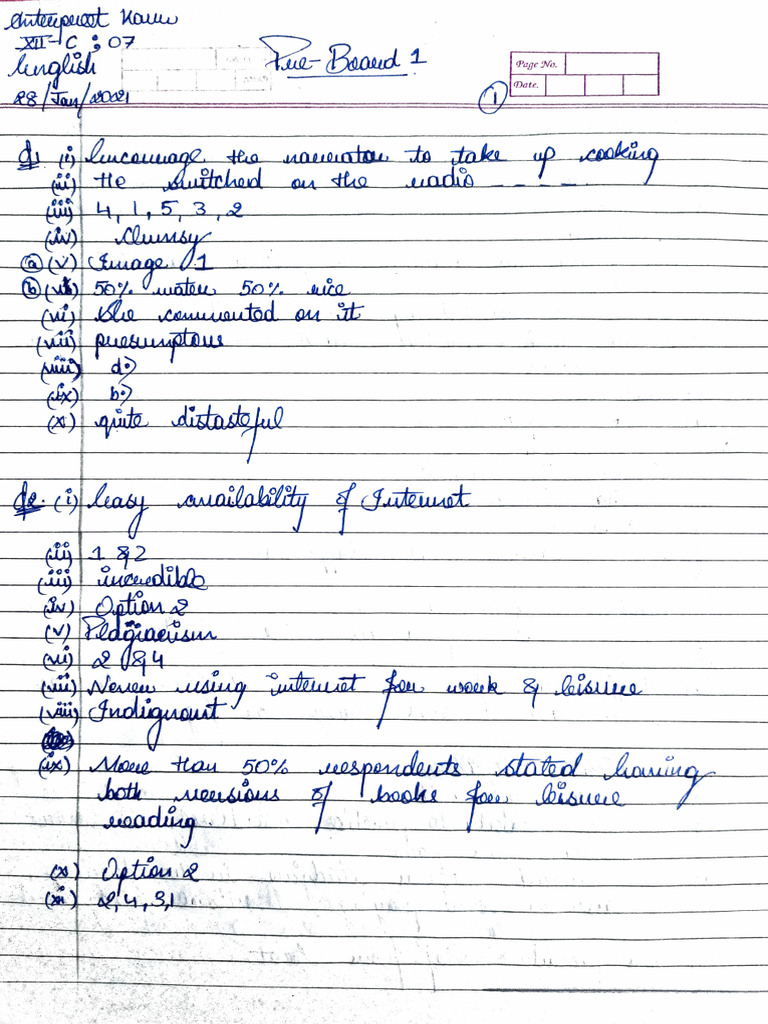 Anterpreet Kaur
XII-C ; 07
English
28/Jan/2021
Pre-Board 1
Page No.
Date.
1
Q1 (i) Encourage the narrator to take up cooking
(ii) He switched on the radio _ _ _ _ _
(iii) 4, 1, 5, 3, 2
(iv) Clumsy
a (v) Image 1
b 50% water 50% rice
(vi) She commented on it
(vii) presumptous
(viii) d.)
(ix) b.)
(x) quite distasteful
Q2. (i) Easy availability of Internet
(ii) 1 & 2
(iii) incredible
(iv) Option 2
(v) Plagiarism
(vi) 2 & 4
(vii) Never using internet for work & leisure
(viii) Indignant
(ix) More than 50% respondents stated having
both versions of books for leisure
reading.
(x) Option 2
(xi) 2, 4, 3, 1